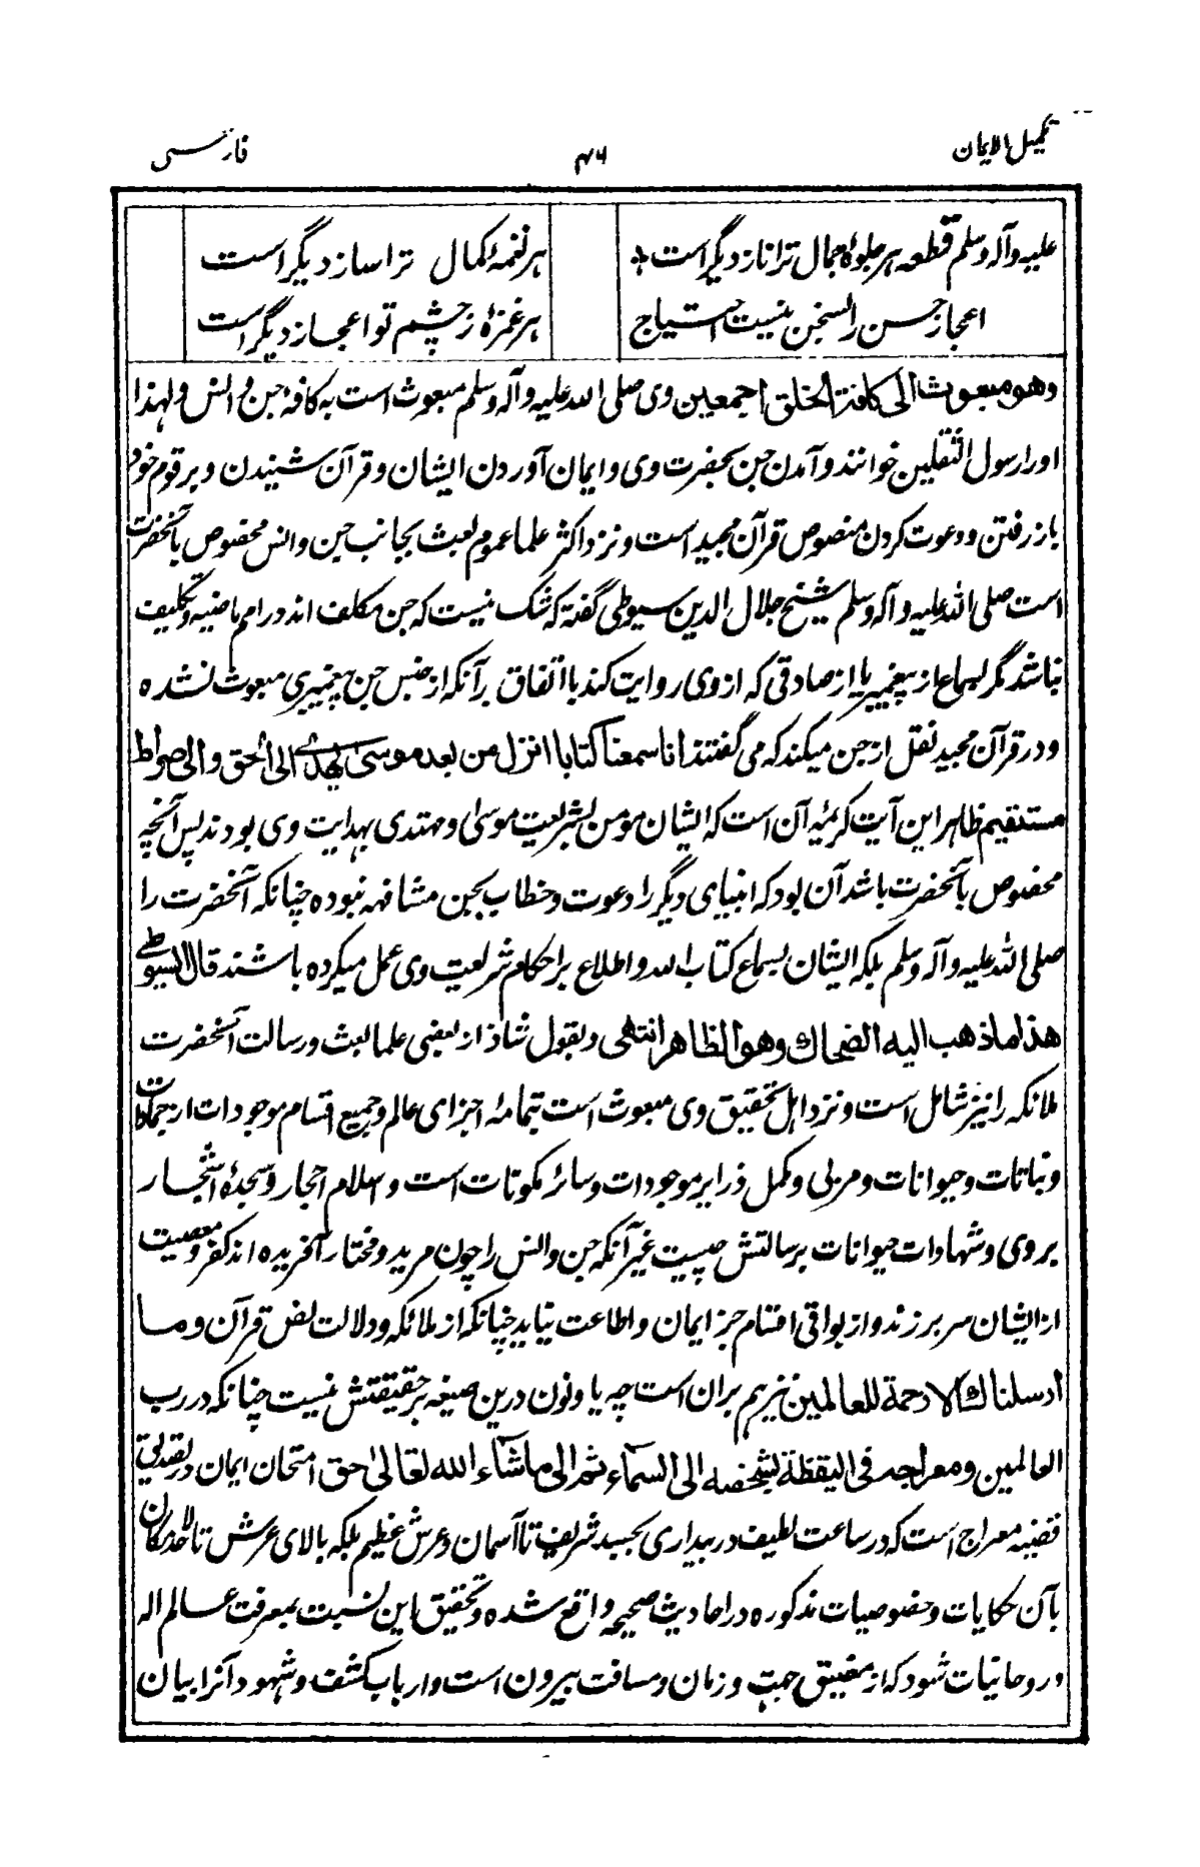 تکمیل الایمان
۴۶
فارسی
علیه وآله وسلم قطعه هر جلوهٔ جمال ترا ناز دیگر است
هر نغمهٔ کمال ترا ساز دیگر است
اعجاز حسن را سخن نیست احتیاج
هر غمزهٔ ز چشم تو اعجاز دیگر است
وهو مبعوث الی کافة الخلق اجمعین وی صلی الله علیه وآله وسلم مبعوث است به کافهٔ جن و انس ولهذا
او را رسول الثقلین خوانند و آمدن جن بحضرت وی و ایمان آوردن ایشان و قرآن شنیدن و بر قوم خود
باز رفتن و دعوت کردن منصوص قرآن مجید است و نزد اکثر علما عموم بعث بجانب جن و انس مخصوص بآنحضرت
است صلی الله علیه وآله وسلم شیخ جلال الدین سیوطی گفته که شک نیست که جن مکلف اند در امم ماضیه و تکلیف
نباشد مگر بسماع از پیغمبر یا از صادقی که از وی روایت کند با اتفاق برآنکه از جنس جن پیغمبری مبعوث نشده
و در قرآن مجید نقل از جن میکند که می گفتند انا سمعنا کتابا انزل من بعد موسی یهدی الی الحق والی صراط
مستقیم ظاهر این آیت کریمه آن است که ایشان مومن بشریعت موسیٰ و مهتدی بهدایت وی بودند پس آنچه
مخصوص بآنحضرت باشد آن بود که انبیای دیگر را دعوت و خطاب بجن مشافهه نبوده چنانکه آنحضرت را
صلی الله علیه وآله وسلم بلکه ایشان بسماع کتاب الله و اطلاع بر احکام شریعت وی عمل میکرده باشند قال السیوطی
هذا ما ذهب الیه الضحاک وهو الظاهر انتهی و بقول شاذ از بعضی علما بعث و رسالت آنحضرت
ملائکه را نیز شامل است و نزد اهل تحقیق وی مبعوث است بتمامهٔ اجزای عالم و جمیع اقسام موجودات از جمادات
و نباتات و حیوانات و مربی و مکمل ذرایر موجودات و سائر مکونات است و اسلام احجار و سجدهٔ اشجار
بر وی و شهادات حیوانات برسالتش چیست غیر آنکه جن و انس را چون مرید و مختار آفریده اند کفر و معصیت
از ایشان سر بر زند و از بواقی اقسام جز ایمان و اطاعت نیاید چنانکه از ملائکه و دلالت نص قرآن وما
ارسلناک الا رحمة للعالمین نیز هم بران است چه یا و نون درین صیغه بر حقیقتش نیست چنانکه در رب
العالمین ومعراجه فی الیقظة بشخصه الی السماء ثم الی ماشاء الله تعالیٰ حق امتحان ایمان در تصدیق
قضیه معراج است که در ساعت لطیف در بیداری بجسد شریف تا آسمان و عرش عظیم بلکه بالای عرش تا حد لامکان
بآن حکایات و خصوصیات مذکوره در احادیث صحیحه واقع شده و تحقیق این نسبت بمعرفت عالم اله
و روحانیات شود که از مضیق جهت و زمان و مسافت بیرون است و ارباب کشف و شهود آنرا بیان